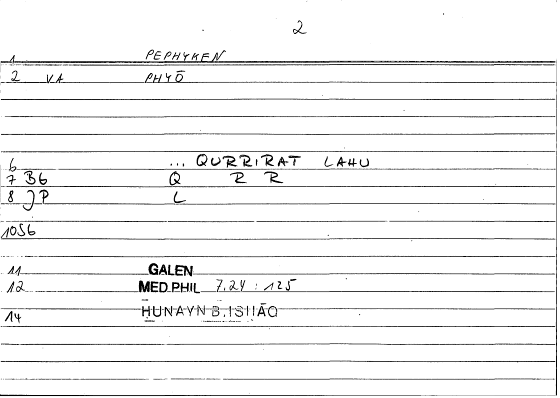 2
1 PEPHYKEN
2 VA PHYŌ
6 ... QURRIRAT LAHU
7 B6 Q R R
8 JP L
10 S6
11 GALEN
12 MED.PHIL 7.24 : 125
14 ḤUNAYN B.ISḤĀQ